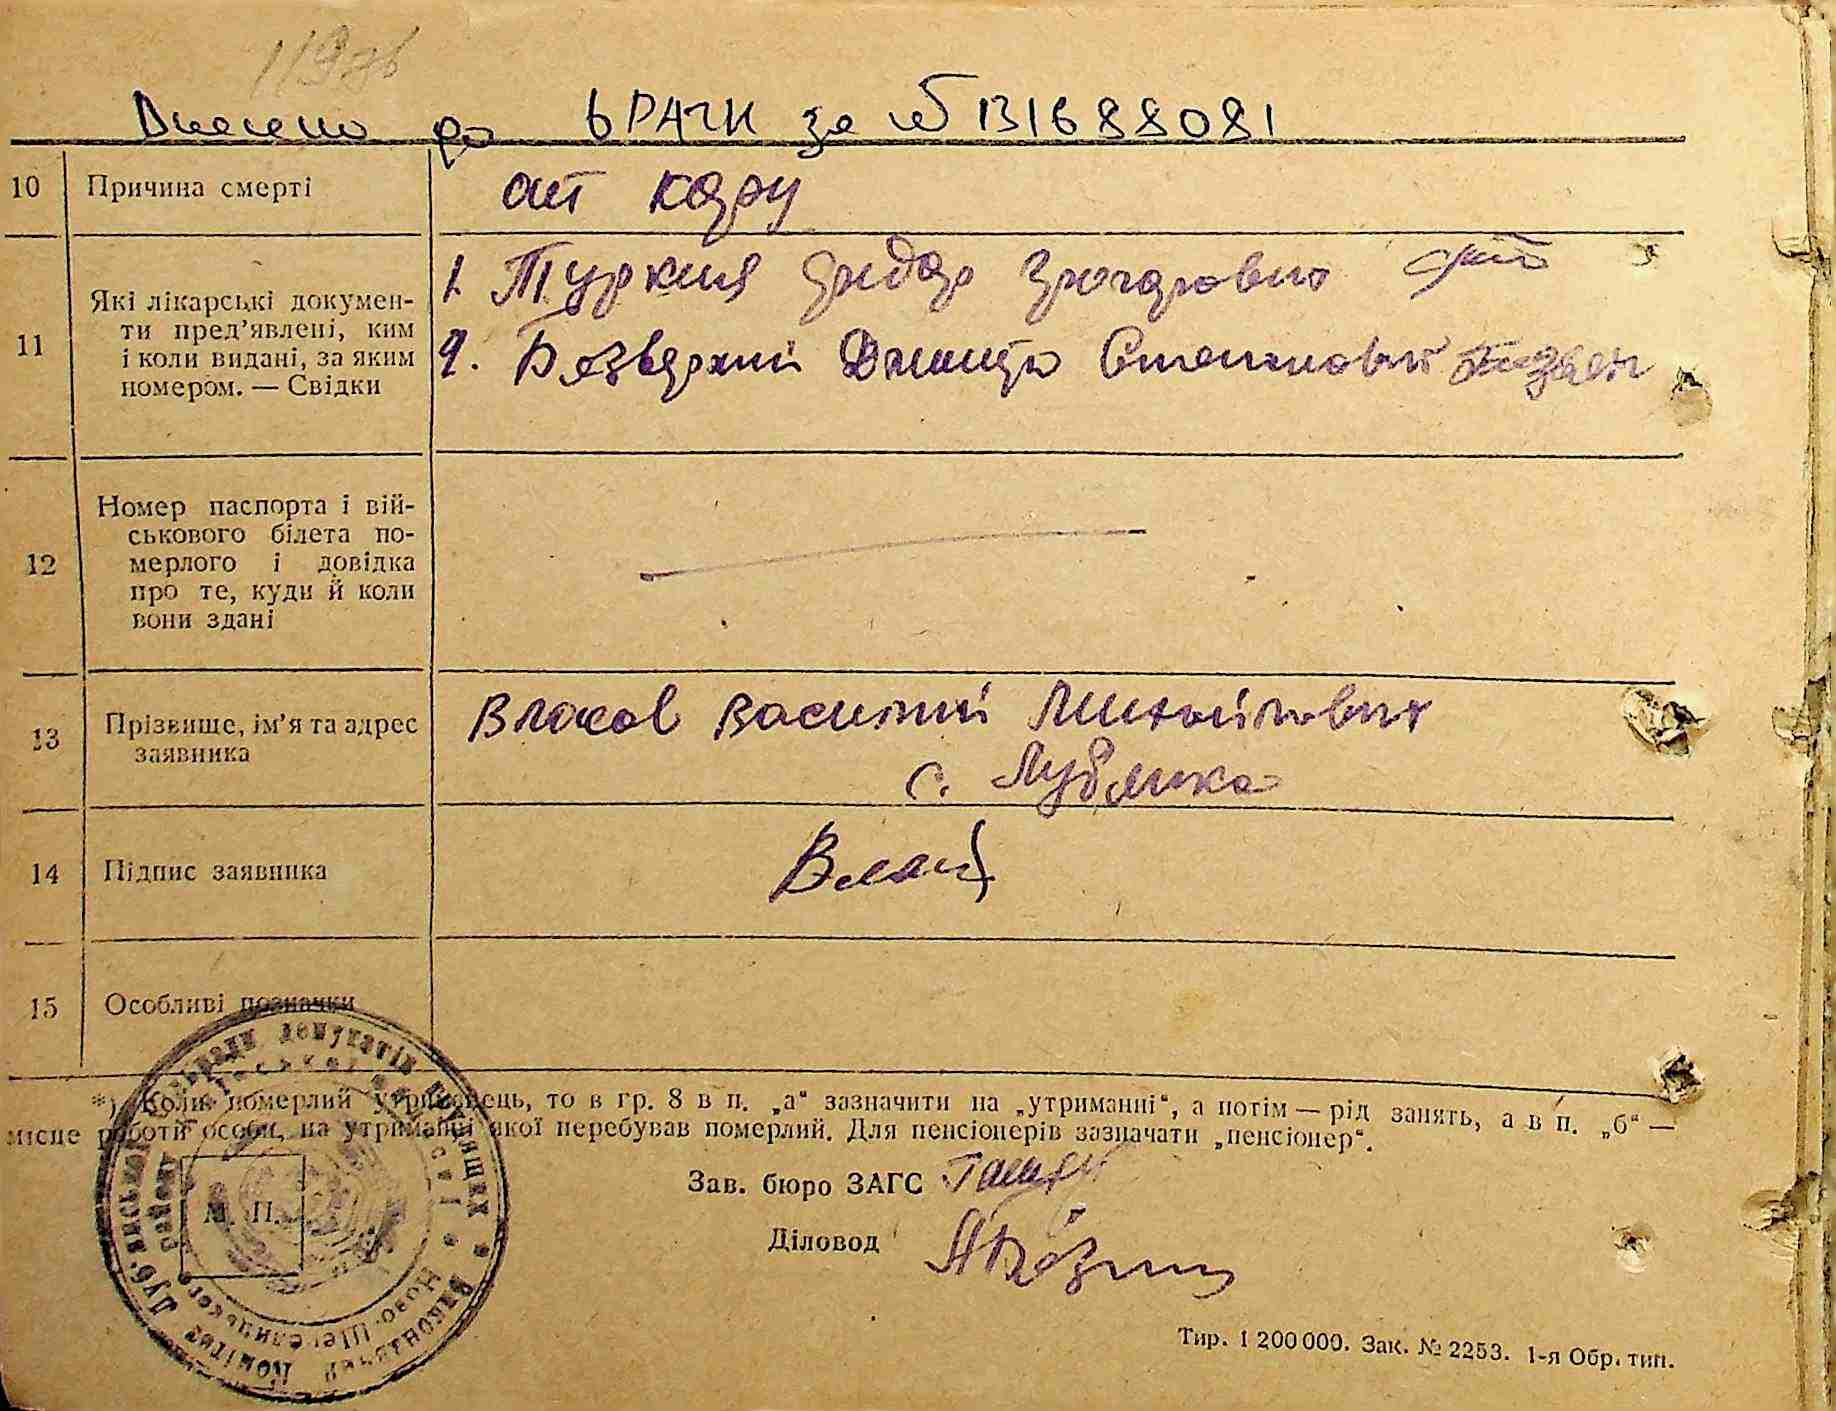 Внесено до ЬРАЧИ за № 131688081
10 Причина смерті
от кору
11 Які лікарські докумен-
ти пред’явлені, ким
і коли видані, за яким
номером. — Свідки
1.
2. Степанович
12 Номер паспорта і вій-
ськового білета по-
мерлого і довідка
про те, куди й коли
вони здані
13 Прізвище, ім’я та адрес
заявника
Власов Василий Михайлович
с. Лубянка
14 Підпис заявника
15 Особливі позначки
*) Коли померлий утриманець, то в гр. 8 в п. „а“ зазначити на „утриманні“, а потім — рід занять, а в п. „б“ —
місце роботи особи, на утриманні якої перебував померлий. Для пенсіонерів зазначати „пенсіонер“.
Зав. бюро ЗАГС
М. П.
Діловод
Тир. 1 200 000. Зак. № 2253. 1-я Обр. тип.